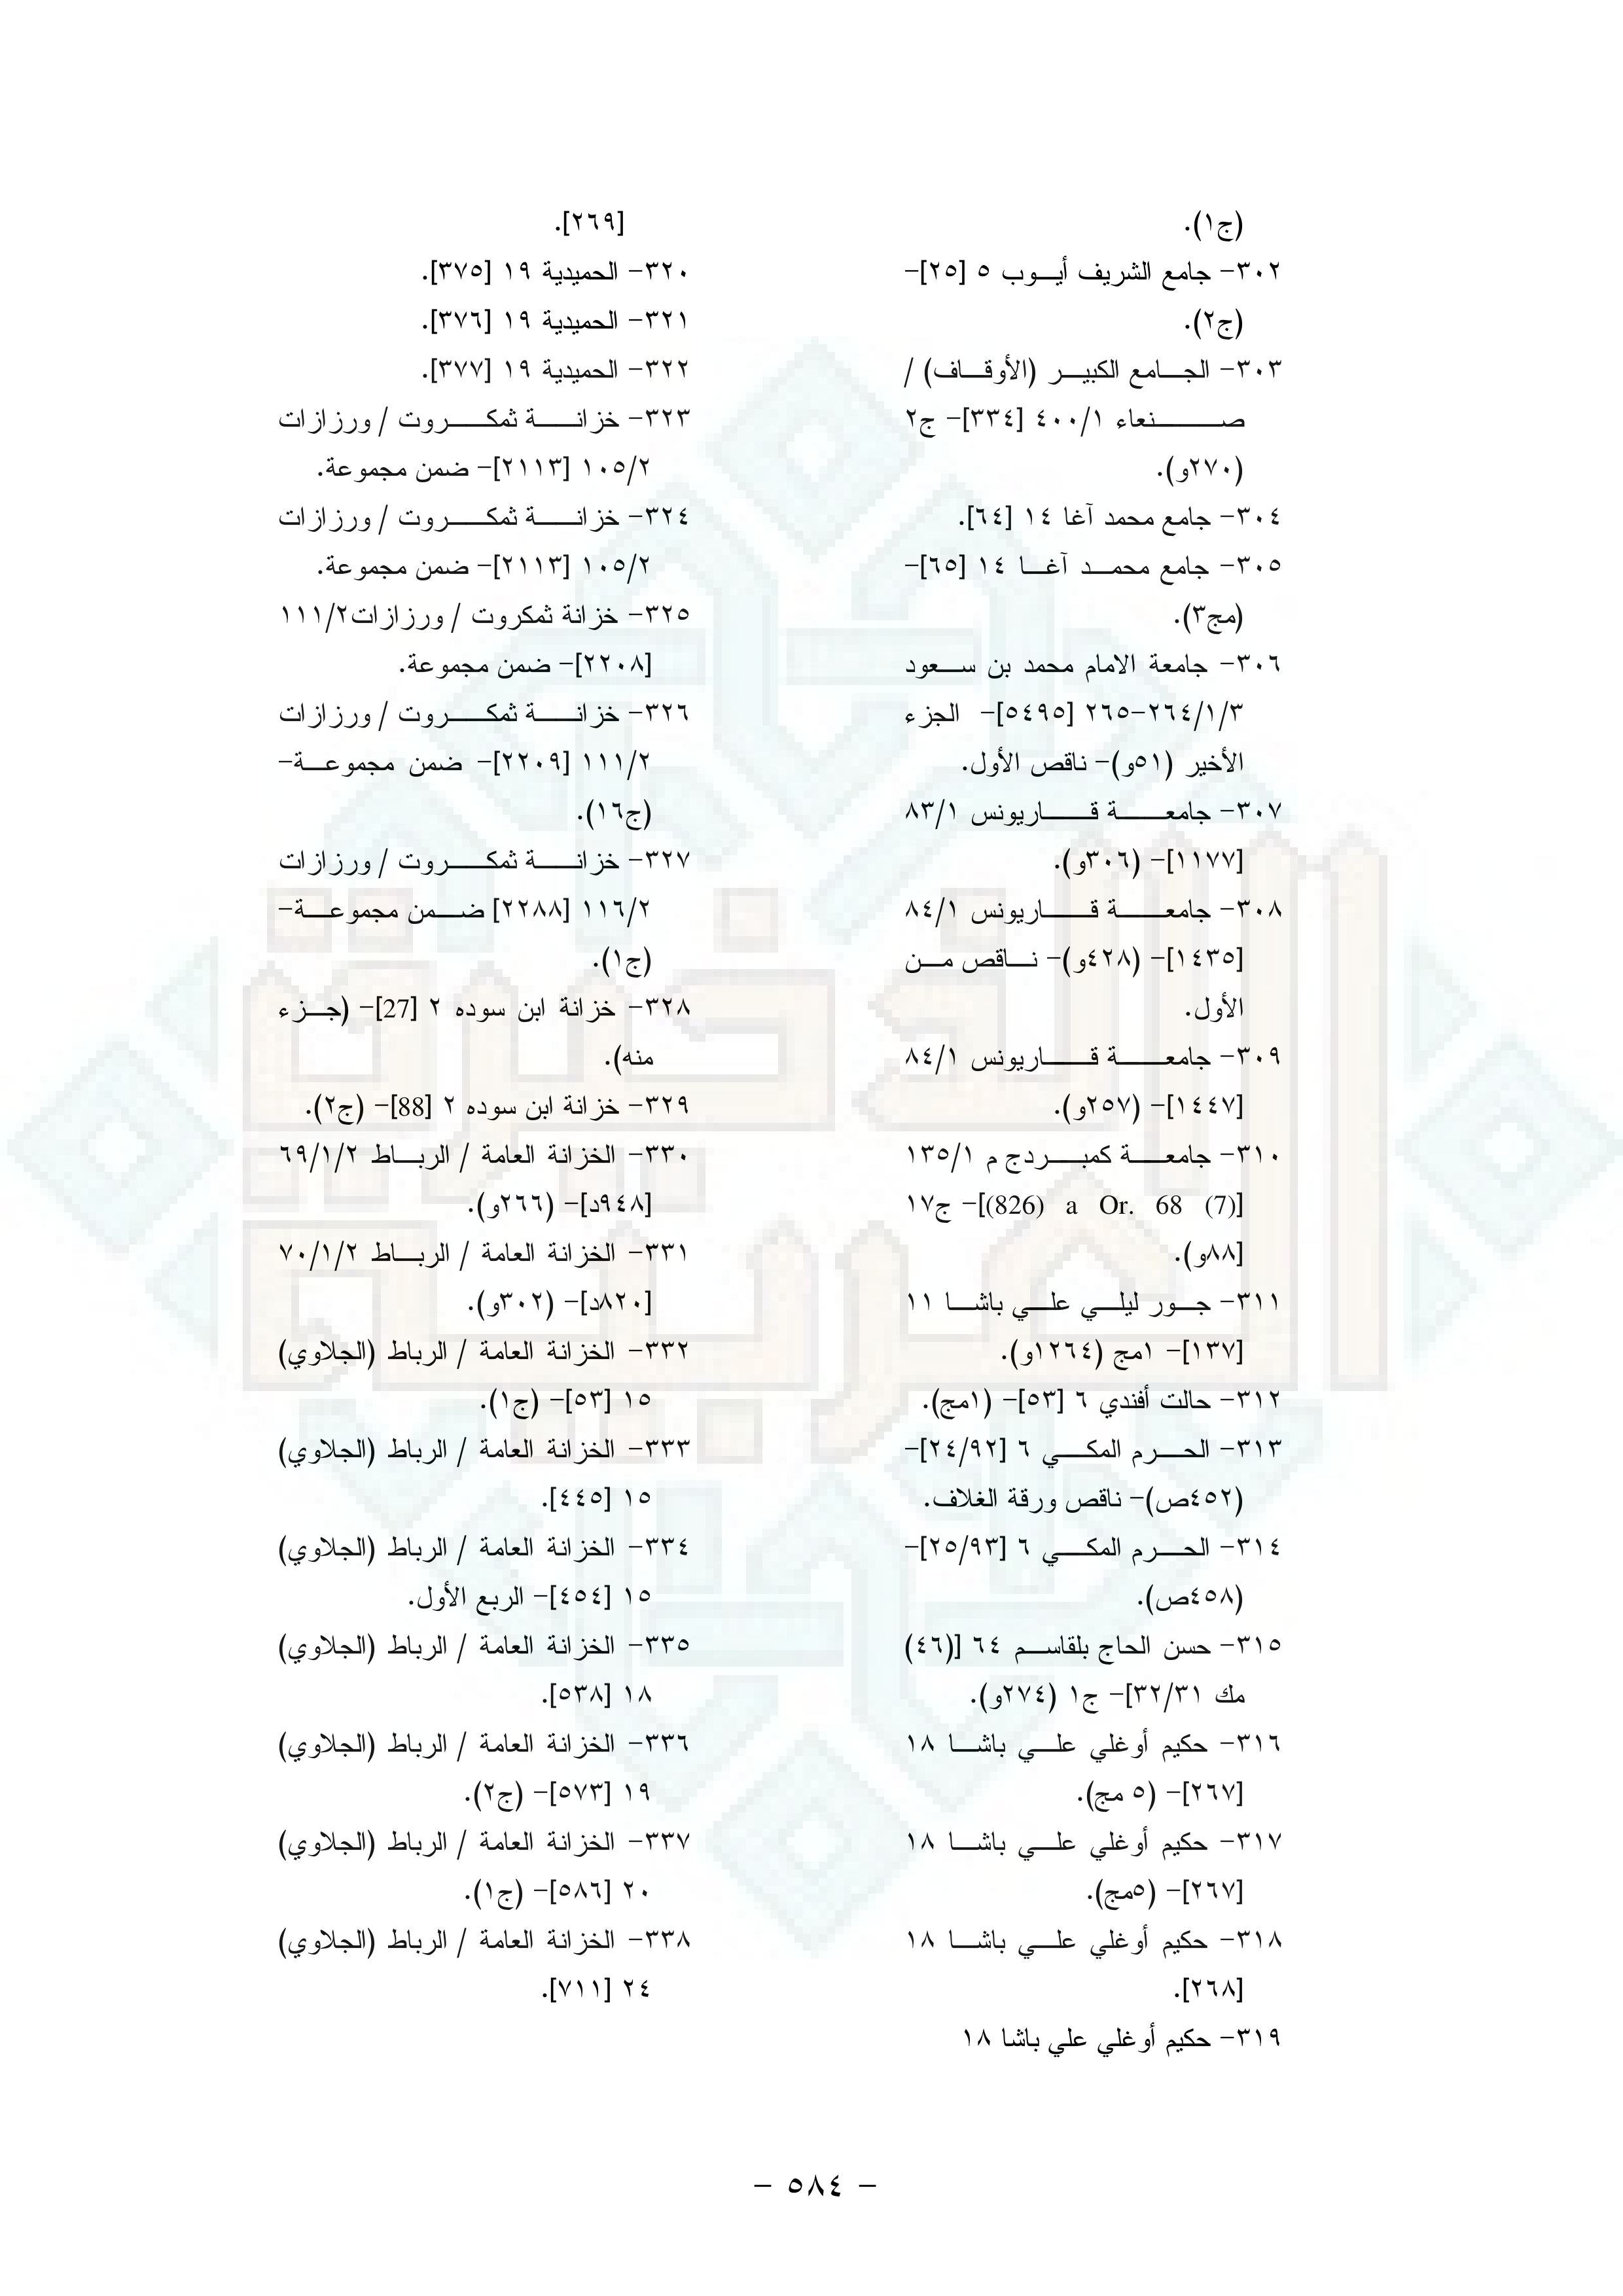 (ج١).
٣٠٢- جامع الشريف أيـــوب ٥ [٢٥]-
(ج٢).
٣٠٣- الجـــامع الكبيـــر (الأوقـــاف) /
صـــــــــنعاء ٤٠٠/١ [٣٣٤]- ج٢
(٢٧٠و).
٣٠٤- جامع محمد آغا ١٤ [٦٤].
٣٠٥- جامع محمـــد آغـــا ١٤ [٦٥]-
(مج٣).
٣٠٦- جامعة الامام محمد بن ســـعود
٢٦٤/١/٣-٢٦٥ [٥٤٩٥]- الجزء
الأخير (٥١و)- ناقص الأول.
٣٠٧- جامعـــــــة قـــــــاريونس ٨٣/١
[١١٧٧]- (٣٠٦و).
٣٠٨- جامعـــــــة قـــــــاريونس ٨٤/١
[١٤٣٥]- (٤٢٨و)- نـــاقص مـــن
الأول.
٣٠٩- جامعـــــــة قـــــــاريونس ٨٤/١
[١٤٤٧]- (٢٥٧و).
٣١٠- جامعـــــة كمبـــــردج م ١٣٥/١
[(826) a Or. 68 (7)]- ج١٧
[٨٨و).
٣١١- جـــور ليلـــي علـــي باشـــا ١١
[١٣٧]- ١مج (١٢٦٤و).
٣١٢- حالت أفندي ٦ [٥٣]- (١مج).
٣١٣- الحـــرم المكـــي ٦ [٢٤/٩٢]-
(٤٥٢ص)- ناقص ورقة الغلاف.
٣١٤- الحـــرم المكـــي ٦ [٢٥/٩٣]-
(٤٥٨ص).
٣١٥- حسن الحاج بلقاســـم ٦٤ [(٤٦)
مك ٣٢/٣١]- ج١ (٢٧٤و).
٣١٦- حكيم أوغلي علـــي باشـــا ١٨
[٢٦٧]- (٥ مج).
٣١٧- حكيم أوغلي علـــي باشـــا ١٨
[٢٦٧]- (٥مج).
٣١٨- حكيم أوغلي علـــي باشـــا ١٨
[٢٦٨].
٣١٩- حكيم أوغلي علي باشا ١٨
[٢٦٩].
٣٢٠- الحميدية ١٩ [٣٧٥].
٣٢١- الحميدية ١٩ [٣٧٦].
٣٢٢- الحميدية ١٩ [٣٧٧].
٣٢٣- خزانـــــة ثمكـــــروت / ورزازات
١٠٥/٢ [٢١١٣]- ضمن مجموعة.
٣٢٤- خزانـــــة ثمكـــــروت / ورزازات
١٠٥/٢ [٢١١٣]- ضمن مجموعة.
٣٢٥- خزانة ثمكروت / ورزازات١١١/٢
[٢٢٠٨]- ضمن مجموعة.
٣٢٦- خزانـــــة ثمكـــــروت / ورزازات
١١١/٢ [٢٢٠٩]- ضمن مجموعـــة-
(ج١٦).
٣٢٧- خزانـــــة ثمكـــــروت / ورزازات
١١٦/٢ [٢٢٨٨] ضـــمن مجموعـــة-
(ج١).
٣٢٨- خزانة ابن سوده ٢ [27]- (جـــزء
منه).
٣٢٩- خزانة ابن سوده ٢ [88]- (ج٢).
٣٣٠- الخزانة العامة / الربـــاط ٦٩/١/٢
[٩٤٨د]- (٢٦٦و).
٣٣١- الخزانة العامة / الربـــاط ٧٠/١/٢
[٨٢٠د]- (٣٠٢و).
٣٣٢- الخزانة العامة / الرباط (الجلاوي)
١٥ [٥٣]- (ج١).
٣٣٣- الخزانة العامة / الرباط (الجلاوي)
١٥ [٤٤٥].
٣٣٤- الخزانة العامة / الرباط (الجلاوي)
١٥ [٤٥٤]- الربع الأول.
٣٣٥- الخزانة العامة / الرباط (الجلاوي)
١٨ [٥٣٨].
٣٣٦- الخزانة العامة / الرباط (الجلاوي)
١٩ [٥٧٣]- (ج٢).
٣٣٧- الخزانة العامة / الرباط (الجلاوي)
٢٠ [٥٨٦]- (ج١).
٣٣٨- الخزانة العامة / الرباط (الجلاوي)
٢٤ [٧١١].
- ٥٨٤ -